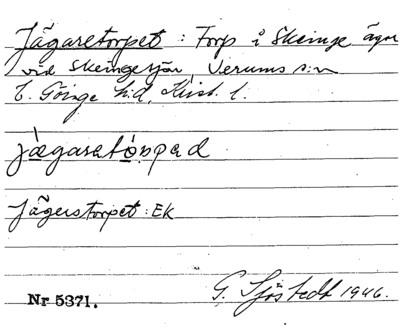 Jägaretorpet : Torp i Skeinge ägor
vid Skeingesjön, Verums s:n
V. Göinge h:d, Krist. l.
jägaratorpad
Jägerstorpet : EK
G. Sjöstedt 1946.
Nr 5371.